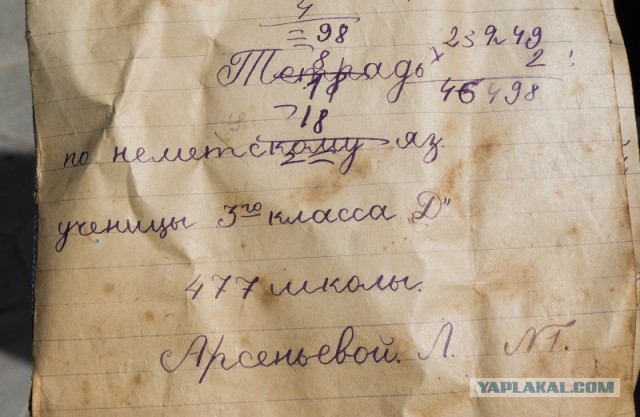 4
= 98
23249
× 2
46498
Тетрадь
18
по неметскому яз.
ученицы 3го класса „D“
477 школы.
Арсеньевой. Л. №1.
YAPLAKAL.COM